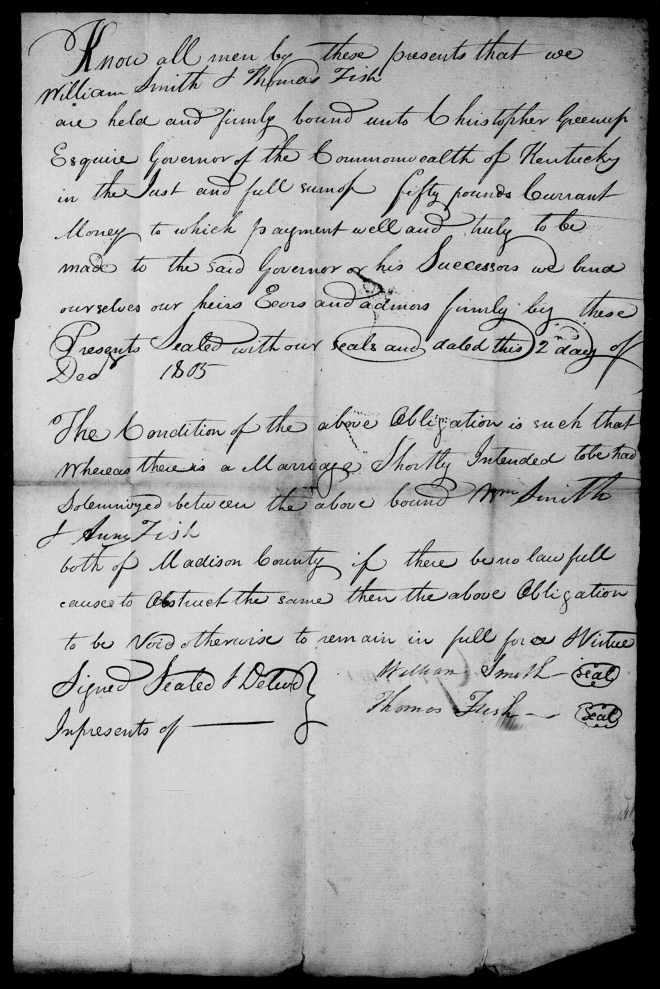 Know all men by these presents that we
William Smith & Thomas Fish
are held and firmly bound unto Christopher Greenup
Esquire Governor of the Commonwealth of Kentucky
in the Just and full sum of fifty pounds Currant
Money to which payment well and truly to be
made to the said Governor or his Successors we bind
ourselves our heirs Exors and admors firmly by these
Presents Sealed with our seals and dated this 2 day of
Decr 1805
The Condition of the above Obligation is such that
Whereas there is a Marriage Shortly Intended to be had
Solemnized between the above bound Wm Smith
& Fish
both of Madison County if there be no lawfull
cause to Obstruct the same then the above Obligation
to be Void otherwise to remain in full force & Virtue
Signed Sealed & Delivd
In presents of
William Smith seal
Thomas Fish seal